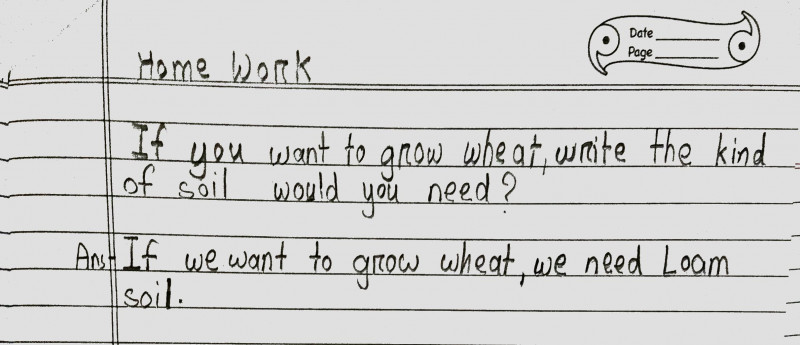 Date
Page
Home Work
If you want to grow wheat, write the kind
of soil would you need?
Ans If we want to grow wheat, we need Loam
soil.